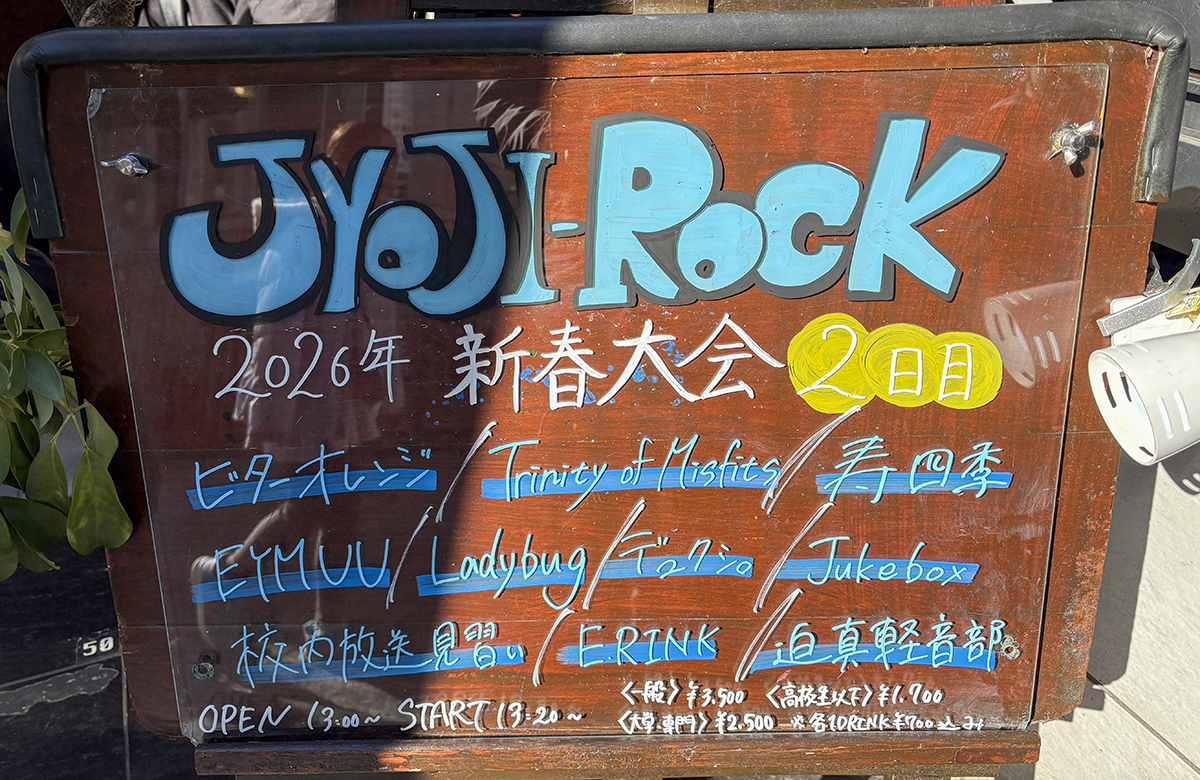 JYOJI-ROCK
2026年 新春大会 2日目
ビターオレンジ / Trinity of Misfits / 寿四季
EYMUU / Ladybug / デュクシ。 / Jukebox
校内放送見習い / E.RINK / 迫真軽音部
OPEN 13:00~ START 13:20~
〈一般〉¥3,500 〈高校生以下〉¥1,700
〈大学・専門〉¥2,500 ※各1DRINK¥700込み
50